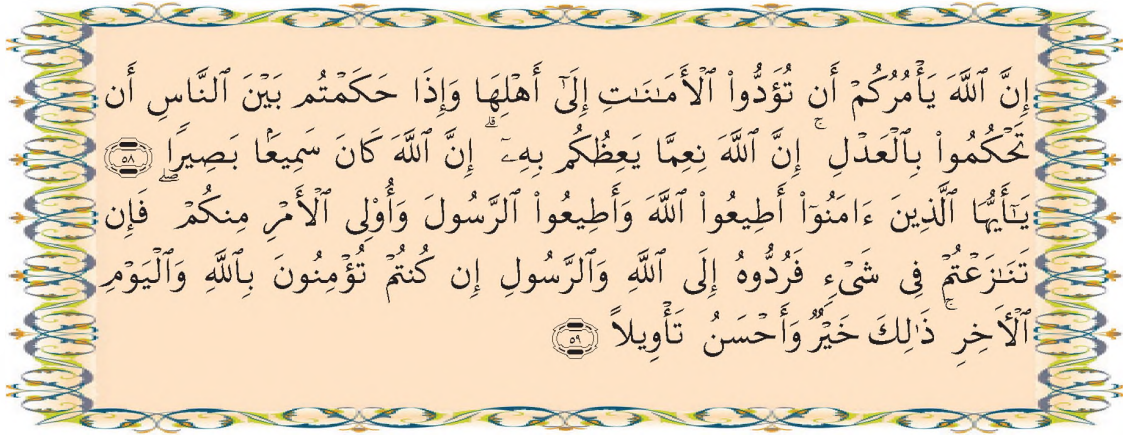 إِنَّ ٱللَّهَ يَأۡمُرُكُمۡ أَن تُؤَدُّواْ ٱلۡأَمَٰنَٰتِ إِلَىٰٓ أَهۡلِهَا وَإِذَا حَكَمۡتُم بَيۡنَ ٱلنَّاسِ أَن
تَحۡكُمُواْ بِٱلۡعَدۡلِۚ إِنَّ ٱللَّهَ نِعِمَّا يَعِظُكُم بِهِۦٓۗ إِنَّ ٱللَّهَ كَانَ سَمِيعَۢا بَصِيرٗا ٥٨
يَٰٓأَيُّهَا ٱلَّذِينَ ءَامَنُوٓاْ أَطِيعُواْ ٱللَّهَ وَأَطِيعُواْ ٱلرَّسُولَ وَأُوْلِي ٱلۡأَمۡرِ مِنكُمۡۖ فَإِن
تَنَٰزَعۡتُمۡ فِي شَيۡءٖ فَرُدُّوهُ إِلَى ٱللَّهِ وَٱلرَّسُولِ إِن كُنتُمۡ تُؤۡمِنُونَ بِٱللَّهِ وَٱلۡيَوۡمِ
ٱلۡأٓخِرِۚ ذَٰلِكَ خَيۡرٞ وَأَحۡسَنُ تَأۡوِيلًا ٥٩